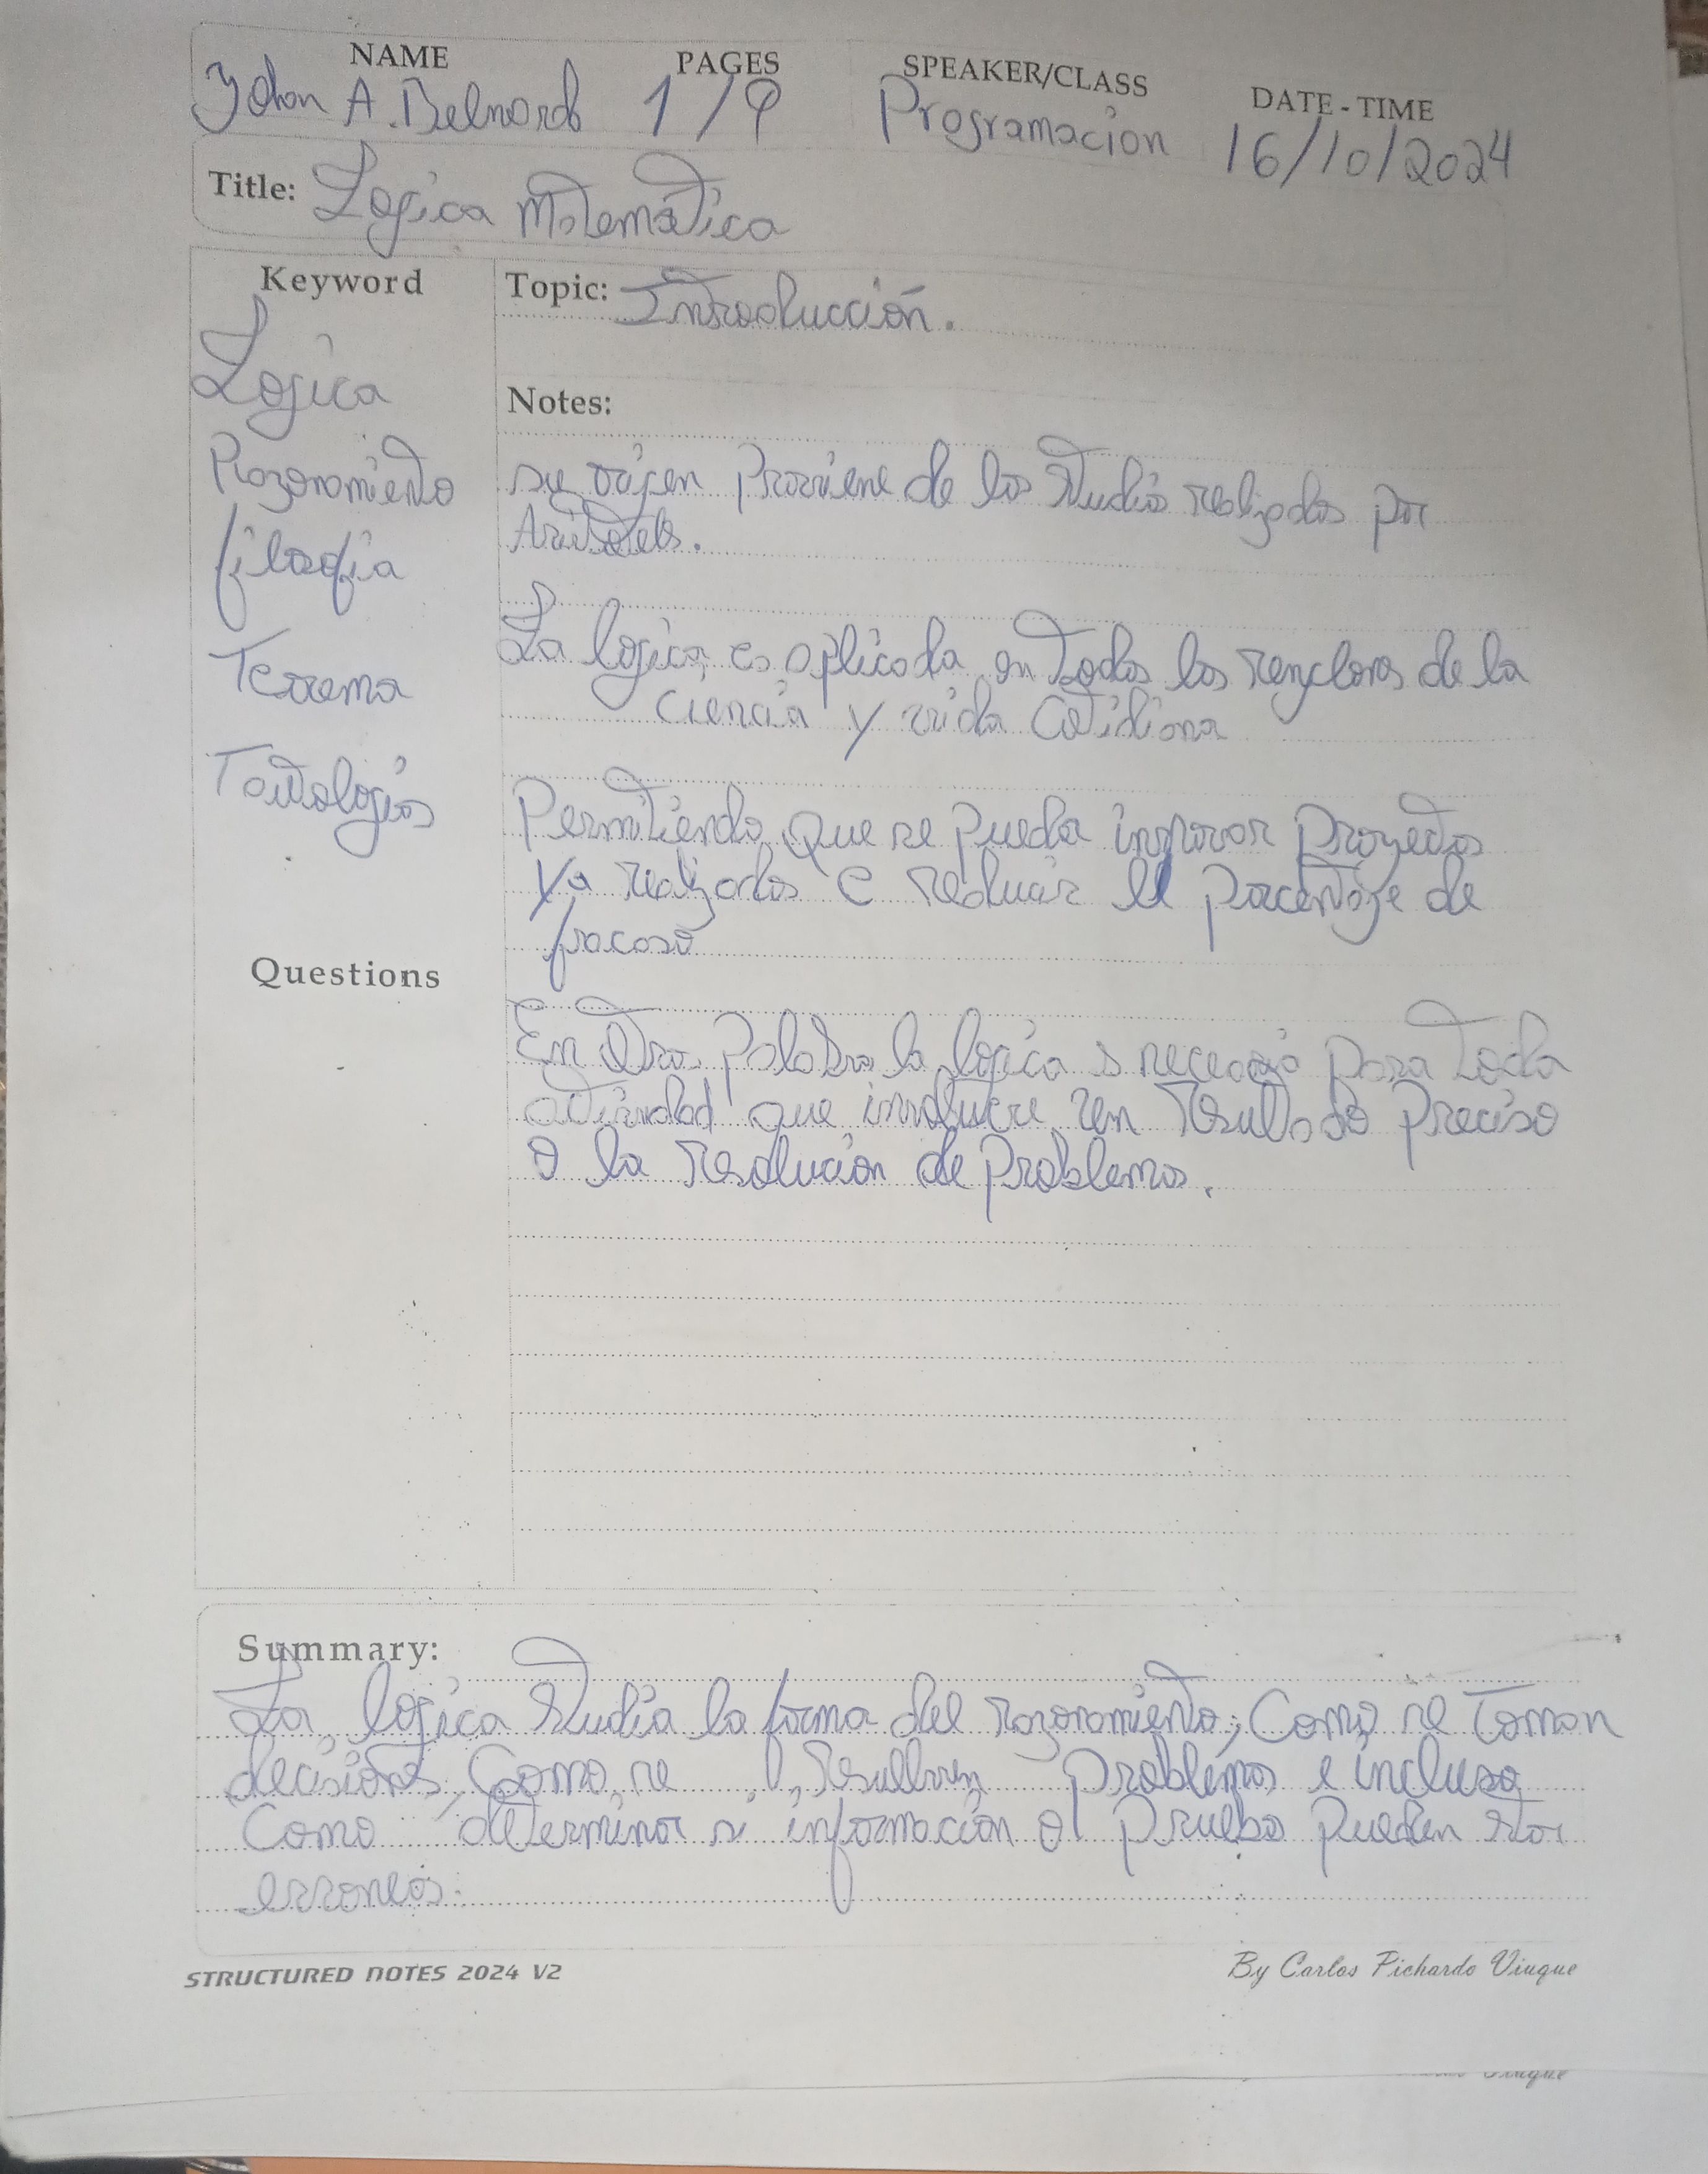 NAME PAGES SPEAKER/CLASS DATE - TIME
John A. Belnard 1/9 Programacion 16/10/2024
Title: Logica Matemática
Keyword
Logica
Razonamiento
filosofia
Teorema
Tautologias
Questions
Topic: Introducción.
Notes:
su origen Proviene de los Studios realizados por
Aristotels.
La logica es aplicada en todos los renglones de la
Ciencia y vida Cotidiana
Permitiendo que se pueda innovar Proyectos
Ya realizados e reducir el porcentaje de
fracaso
En otras palabra la logica s necesario para toda
actividad que involucre un resultado preciso
o la resolución de problemas.
Summary:
La logica studia la forma del razonamiento, Como se toman
decisiones, Como se resuelven problemas e incluso
Como determinar si información o prueba pueden star
erroneos.
STRUCTURED NOTES 2024 V2
By Carlos Pichardo Viuque
Viuque